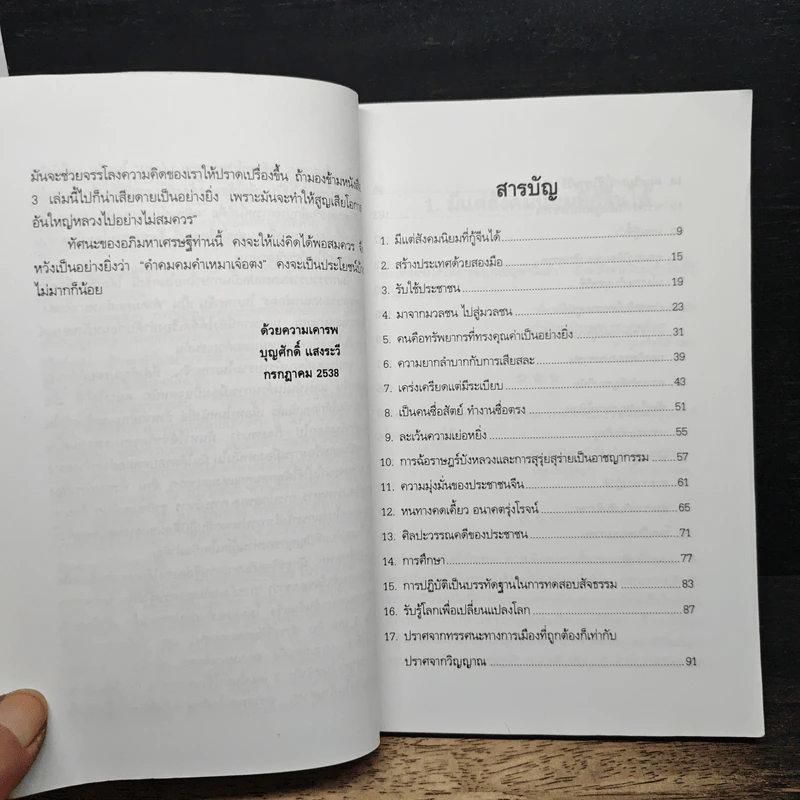 มันจะช่วยจรรโลงความคิดของเราให้ปราดเปรื่องขึ้น ถ้ามองข้ามหนังสือ
3 เล่มนี้ไปก็น่าเสียดายเป็นอย่างยิ่ง เพราะมันจะทำให้สูญเสียโอกาส
อันใหญ่หลวงไปอย่างไม่สมควร"
ทัศนะของอภิมหาเศรษฐีท่านนี้ คงจะให้แง่คิดได้พอสมควร
หวังเป็นอย่างยิ่งว่า "คำคมคมคำเหมาเจ๋อตง" คงจะเป็นประโยชน์
ไม่มากก็น้อย
ด้วยความเคารพ
บุญศักดิ์ แสงระวี
กรกฎาคม 2538
สารบัญ
1. มีแต่สังคมนิยมที่กู้จีนได้ 9
2. สร้างประเทศด้วยสองมือ 15
3. รับใช้ประชาชน 19
4. มาจากมวลชน ไปสู่มวลชน 23
5. คนคือทรัพยากรที่ทรงคุณค่าเป็นอย่างยิ่ง 31
6. ความยากลำบากกับการเสียสละ 39
7. เคร่งเครียดแต่มีระเบียบ 43
8. เป็นคนซื่อสัตย์ ทำงานซื่อตรง 51
9. ละเว้นความเย่อหยิ่ง 55
10. การฉ้อราษฎร์บังหลวงและการสุรุ่ยสุร่ายเป็นอาชญากรรม 57
11. ความมุ่งมั่นของประชาชนจีน 61
12. หนทางคดเคี้ยว อนาคตรุ่งโรจน์ 65
13. ศิลปะวรรณคดีของประชาชน 71
14. การศึกษา 77
15. การปฏิบัติเป็นบรรทัดฐานในการทดสอบสัจธรรม 83
16. รับรู้โลกเพื่อเปลี่ยนแปลงโลก 87
17. ปราศจากทรรศนะทางการเมืองที่ถูกต้องก็เท่ากับ
ปราศจากวิญญาณ 91